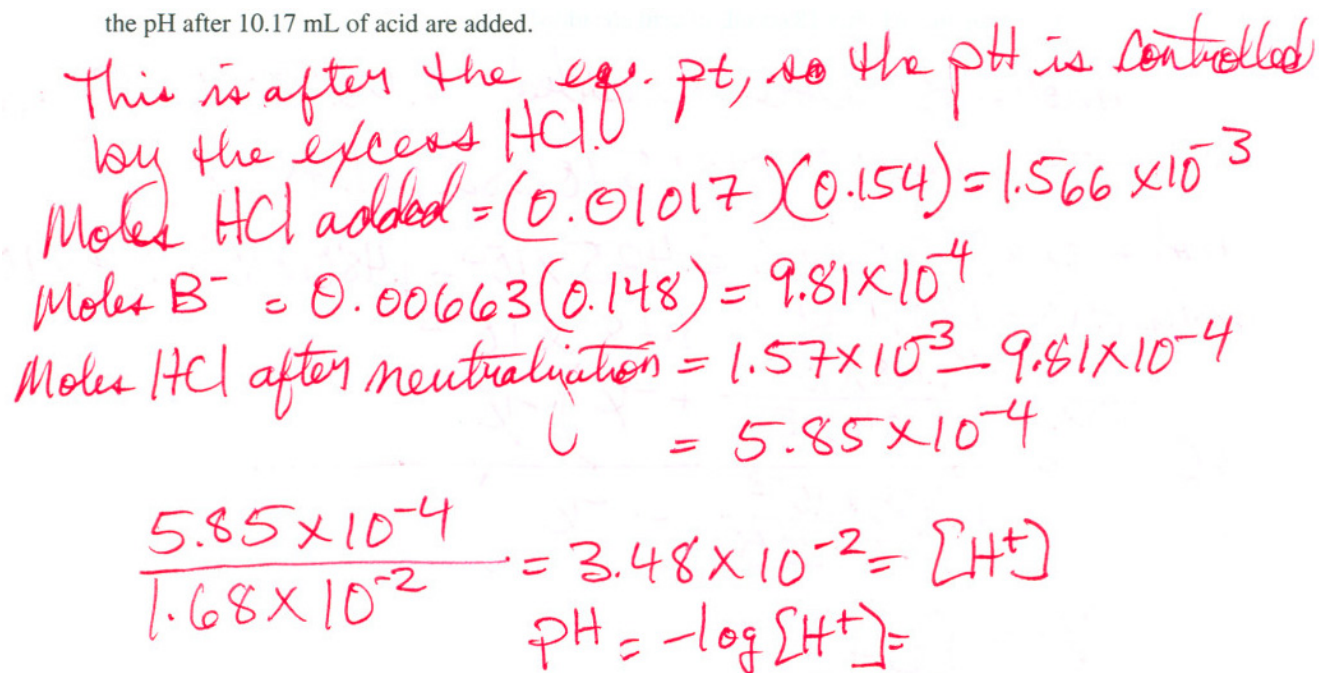 the pH after 10.17 mL of acid are added.
This is after the eq. pt, so the pH is controlled
by the excess HCl.
Moles HCl added = (0.01017)(0.154) = 1.566 x10⁻³
Moles B⁻ = 0.00663(0.148) = 9.81x10⁻⁴
Moles HCl after neutralization = 1.57x10⁻³ - 9.81x10⁻⁴
= 5.85x10⁻⁴
5.85x10⁻⁴ / 1.68x10⁻² = 3.48x10⁻² = [H⁺]
pH = -log[H⁺] =